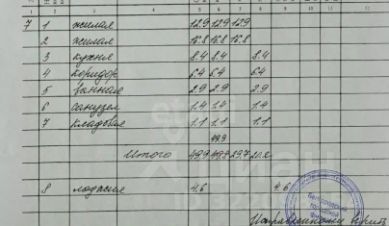 3 4 5 6 7 8 9 10 11 12
7 1 жилая 12.9 12.9 12.9
2 жилая 16.8 16.8 16.8
3 кухня 8.4 8.4 8.4
4 коридор 6.4 6.4 6.4
5 ванная 2.9 2.9 2.9
6 санузел 1.4 1.4 1.4
7 кладовая 1.1 1.1 1.1
49.9
Итого 49.9 49.9 29.7 20.2
8 лоджия 4.6 4.6
Исправленному верить